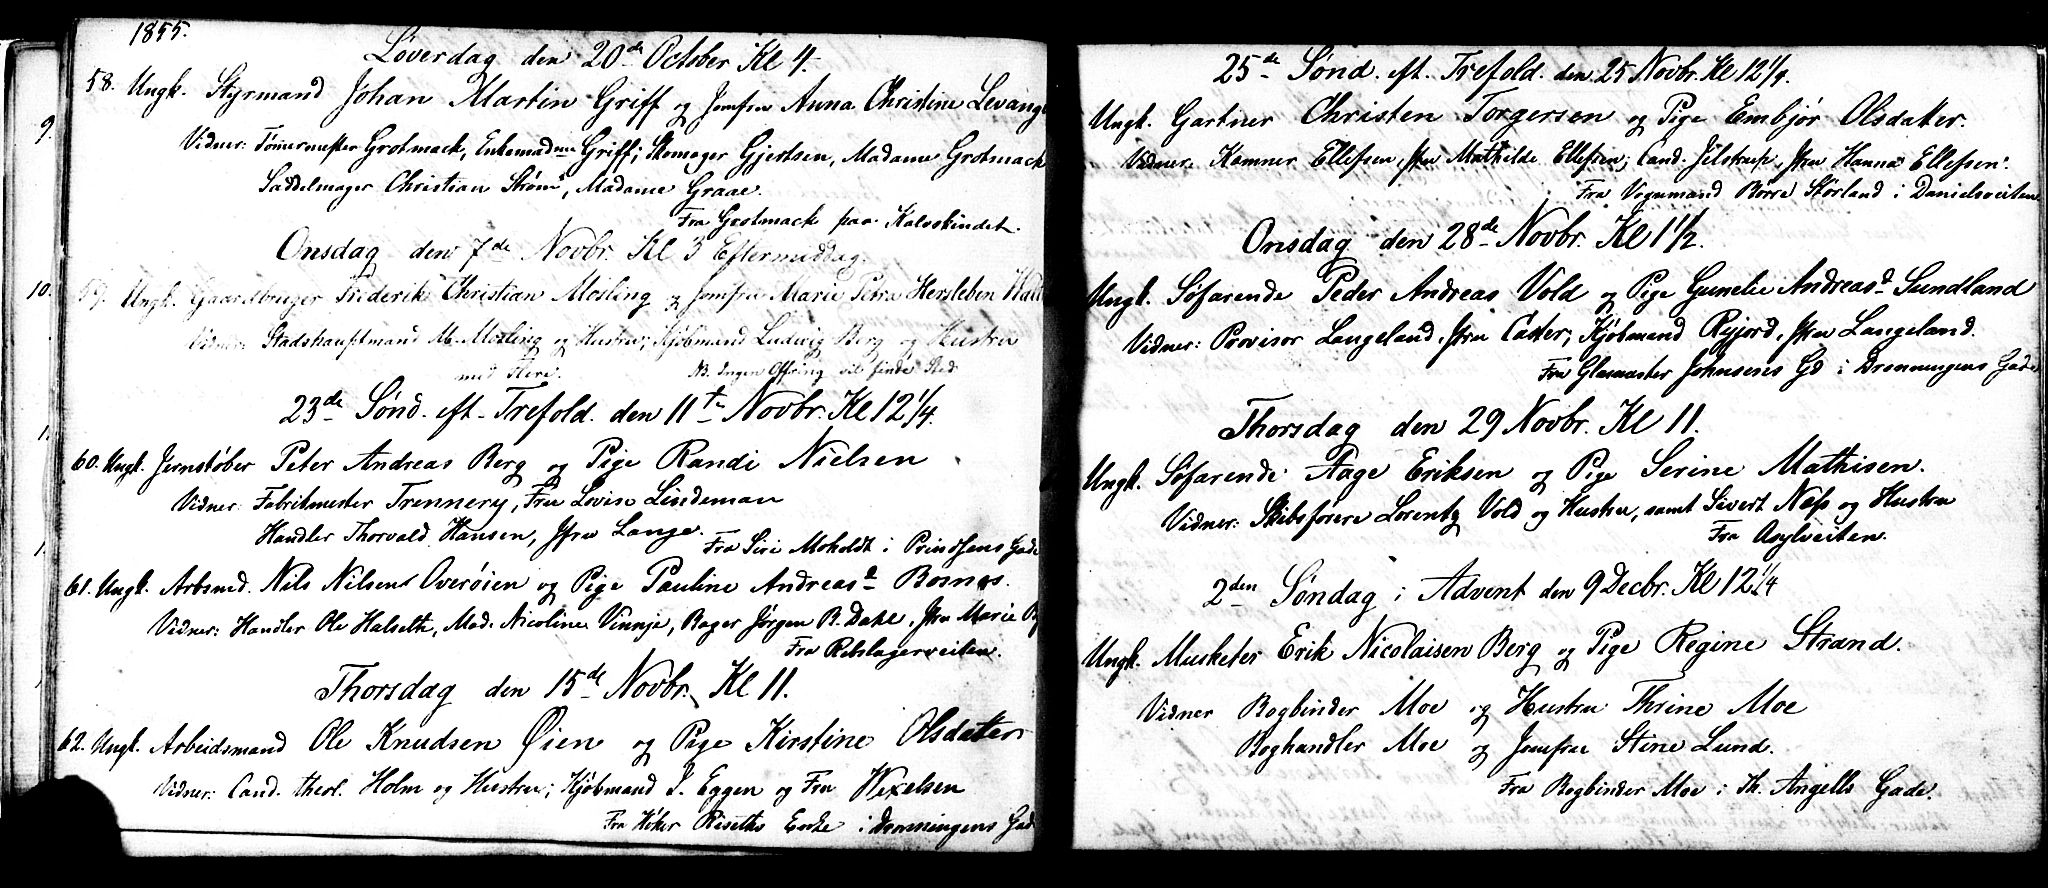 1855.
Löverdag den 20de October Kl 4.
58. Ungk. Styrmand Johan Martin Griff og Jomfru Anna Christine Levang
Vidner: Tömmermester Grotmack, Enkemadme Griff; Skomager Gjertsen, Madame Grotmack
Saddelmager Christian Ström, Madame Graae.
Fra Grotmack paa Kalvskindet.
Onsdag den 7de Novbr. Kl 3 Eftermiddag.
59. Ungk. Gaardbruger Frederik Christian Mosling og Jomfru Marie Petra Hersleben
Vidner: Stadshauptmand M. Mosling og Hustru; Kjöbmand Ludvig Berg og Hustru
med Flere. NB. Ingen Offring vil finde Sted
23de Sönd. eft. Trefold. den 11te Novbr. Kl 12 1/4.
60. Ungk. Jernstöber Peter Andreas Berg og Pige Randi Nielsen
Vidner: Fabrikmester Trennery, Fru Lovise Lindeman
Handler Thorvald Hansen, Jfru Lange.
Fra Siri Moholdt i Prindsens Gade
61. Ungk. Arbsmd. Nils Nilsen Overöien og Pige Pauline Andreasd Bosnes.
Vidner: Handler Ole Halseth, Mad. Nicoline Vinnje, Bager Jörgen B. Dahl, Jfru Marie
Fra Rebslagerveiten.
Thorsdag den 15de Novbr. Kl 11.
62. Ungk. Arbeidsmand Ole Knudsen Øien og Pige Kirstine Olsdatter
Vidner: Cand. theol. Holm og Hustru; Kjöbmand J. Eggen og Fru Wexelsen
Fra Höker Riseths Enke i Dronningens Gad
25de Sönd. eft. Trefold. den 25 Novbr. Kl 12 1/4.
Ungk. Gartner Christen Torgersen og Pige Embjör Olsdatter.
Vidner: Kemner Ellefsen, Jfru Mathilde Ellefsen; Cand. Jelstrup, Jfru Hanna Ellefsen.
Fra Vognmand Börre Störland i Danielsveiten
Onsdag den 28de Novbr. Kl 1 1/2.
Ungk. Söfarende Peder Andreas Vold og Pige Gunelie Andreasd Sundland
Vidner: Provisor Langeland, Jfru Carter; Kjöbmand Ryjord, Jfru Langeland.
Fra Glasmester Johnsens Gd i Dronningens Gade
Thorsdag den 29 Novbr. Kl 11.
Ungk. Söfarende Aage Eriksen og Pige Serine Mathisen.
Vidner: Skibsförere Lorentz Vold og Hustru, samt Sivert Næss og Hustru
Fra Asylveiten.
2den Söndag i Advent den 9 Decbr. Kl 12 1/4
Ungk. Musketer Erik Nicolaisen Berg og Pige Regine Strand.
Vidner Bogbinder Moe og Hustru Thrine Moe
Boghandler Moe og Jomfru Stine Lund.
Fra Bogbinder Moe i Th. Angells Gade.
9.
10.